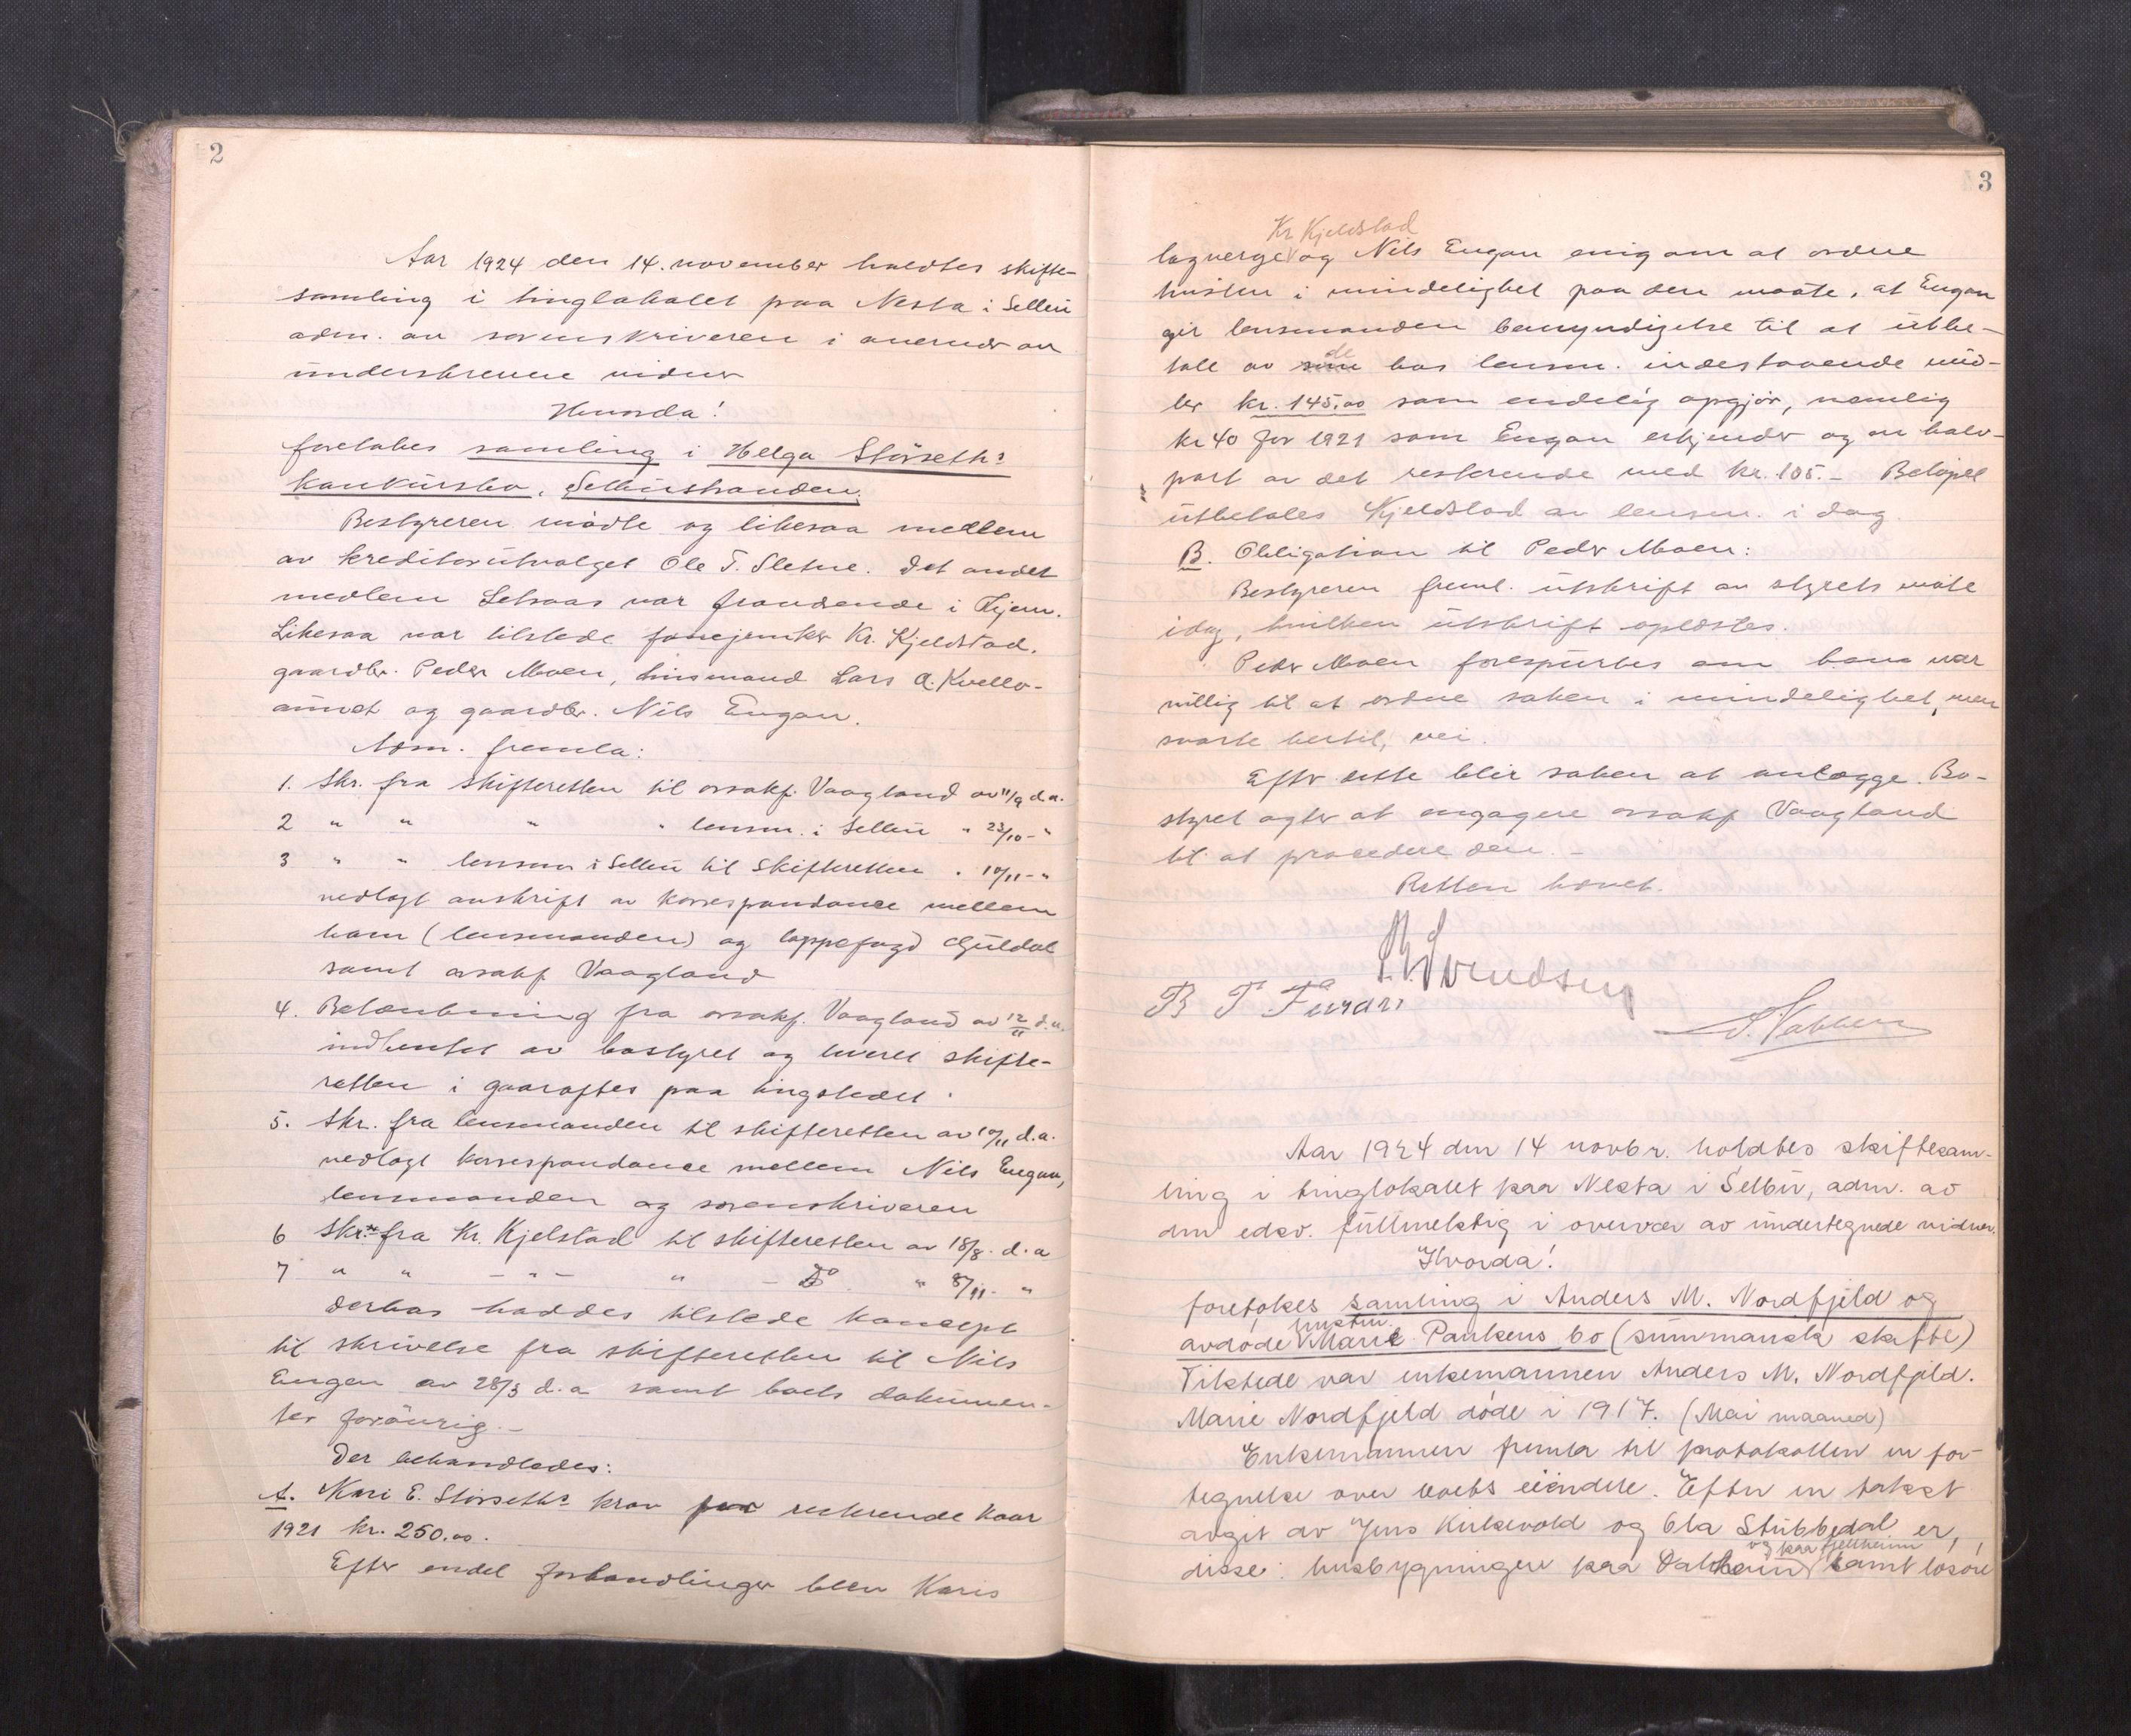 2
Aar 1924 den 14. november holdtes skifte-
samling i tinglokalet paa Nesta i Selbu
adm. av sorenskriveren i overvær av
underskrevne vidner
Hvorda!
foretokes samling i Helga Störseths
konkursbo, Selbustranden.
Bestyreren mödte og likesaa medlem
av kreditorutvalget Ole T. Sletne. Det andet
medlem Setsaas var fraværende i Tjem.
Likesaa var tilstede fanejunker Kr. Kjeldstad,
gaardbr. Peder Moen, husmand Lars A. Kvello-
aunet og gaardbr. Nils Engan.
Adm. fremla:
1. Skr. fra skifteretten til o.r.sakf. Vaagland av 11/9 d.a.
2 " " " " lensm. i Selbu " 23/10 - "
3 " " lensm i Selbu til Skifteretten " 10/11 - "
vedlagt avskrift av korrespondance mellem
ham (lensmanden) og lappefogd Guldal
samt o.r.sakf Vaagland
4. Betænkning fra o.r.sakf. Vaagland av 12/11 d.a.
indhentet av bostyret og leveret skifte-
retten i gaaraftes paa tingstedet.
5. Skr. fra lensmanden til skifteretten av 10/11 d.a.
vedlagt korrespondance mellem Nils Engan,
lensmanden og sorenskriveren
6 Skr. fra Kr. Kjelstad til skifteretten av 18/8. d.a
7 " " - " - " - Do " 8/11 - "
Derhos haddes tilstede koncept
til skrivelse fra skifteretten til Nils
Engan av 28/3 d.a samt boets dokumen-
ter forövrig. -
Der behandledes:
A. Kari E. Störseths krav paa resterende kaar
1921 kr. 250.00.
Efter endel forhandlinger blev Karis
3
Kr Kjeldstad
lagverge og Nils Engan enig om at ordne
tvisten i mindelighet paa den maate, at Engan
gir lensmanden bemyndigelse til at utbe-
tale av de hos lensm. indestaaende mid-
ler kr. 145.00 som endelig opgjör, nemlig
kr 40 for 1921 som Engan erkjender og en halv-
part av det resterende med kr. 105. - Belöpet
utbetales Kjeldstad av lensm. i dag.
B. Obligation til Peder Moen:
Bestyreren freml. utskrift av styrets möte
idag, hvilken utskrift oplæstes.
Peder Moen forespurtes om han var
villig til at ordne saken i mindelighet, men
svarte hertil, nei.
Efter dette blir saken at anlægge. Bo-
styret agter at engagere o.r.sakf Vaagland
til at procedere den. -
Retten hævet.
Svendsen
B T Furan
Aar 1924 den 14 novbr. holdtes skiftesam-
ling i tinglokalet paa Nesta i Selbu, adm. av
den edsv. fullmektig i overvær av undertegnede vidner.
Hvorda!
foretokes samling i Anders M. Nordfjeld og
hustru
avdöde Marie Paulsens bo (summarisk skifte)
Tilstede var enkemannen Anders M. Nordfjeld.
Marie Nordfjeld döde i 1917. (Mai maaned)
Enkemannen fremla til protokollen en for-
tegnelse over boets eiendele. Efter en takst
avgit av Jens Kirkevold og Ola Stubbedal er,
og paa fjellheim
disse: husbygningen paa Dalheim samt lösöre